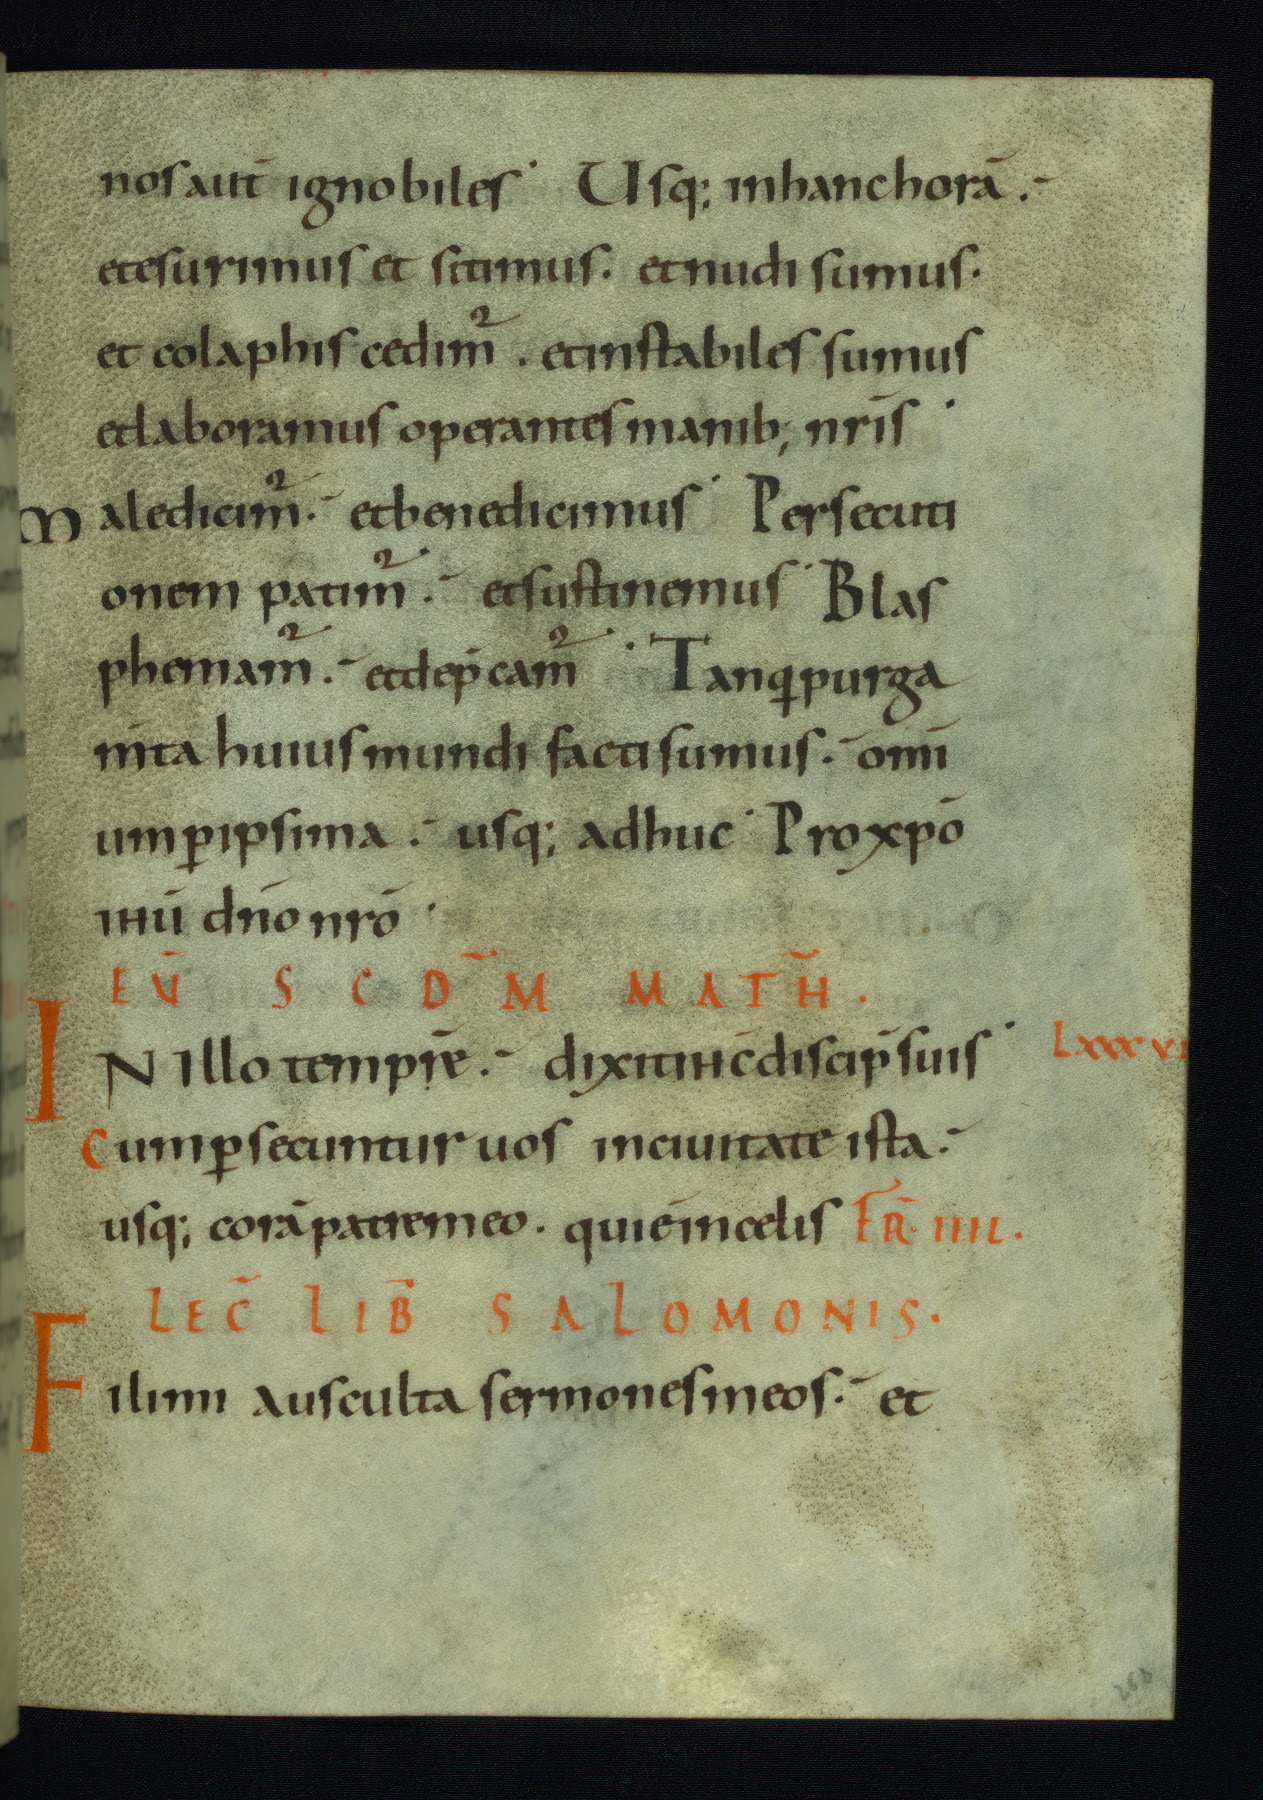 nos aut̄ ignobiles Usq; inhanchorā.
etesurimus et sitimus. etnudi sumus.
et colaphis cedim̄². etinstabiles sumus
etlaboramus operantes manib; nr̄is
Maledicim². etbenedicimus Persecuti
onem patim². etsustinemus Blas
phemam². etdep̄cam² Tanq̄purga
m̄ta huius mundi facti sumus. om̄i
um p̱ipsima. usq; adhuc Pro xp̄o
ihū dn̄o nr̄o
EV̄ SCDM̄ MATH̄.
IN Illo temp̄re. dixit ihc̄ discip̄ suis LXXXVI
Cum p̱secuntur uos inciuitate ista.
usq; corā patremeo. quiēincelis FR̄. IIII.
LEC̄ LIB̄ SALOMONIS.
Filimi Ausculta sermones meos. et
268